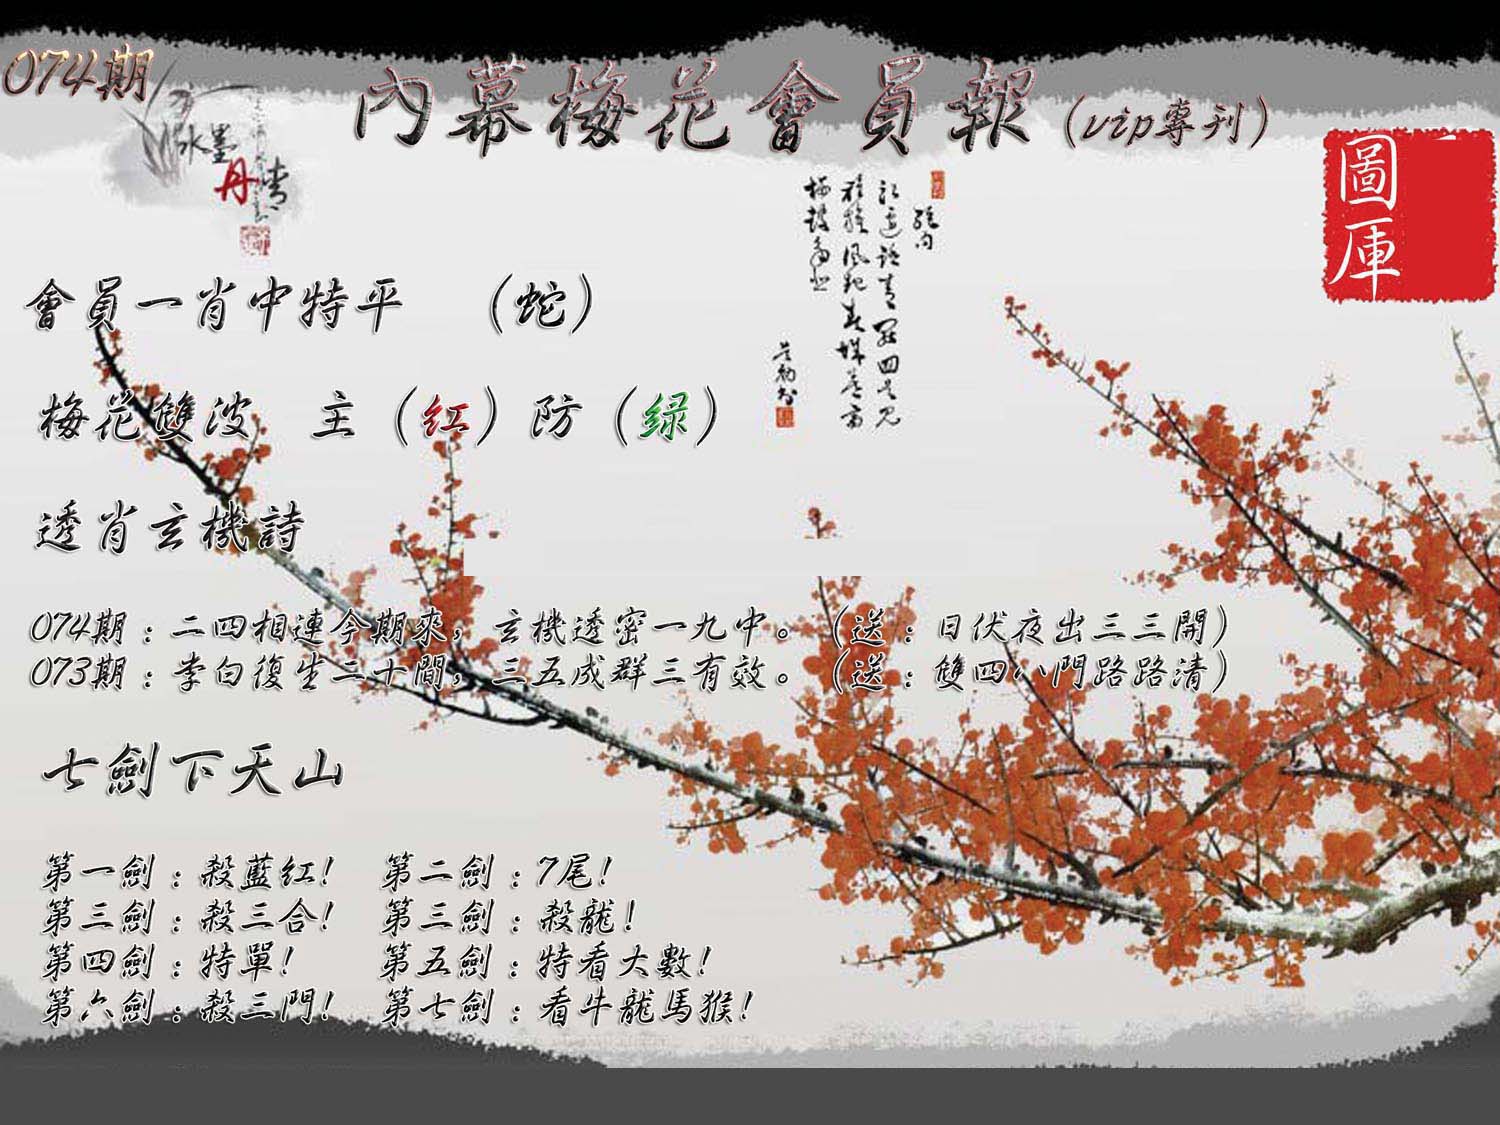 074期
內幕梅花會員報（vip專刊）
水墨
丹青
圖庫
會員一肖中特平 （蛇）
梅花雙波 主（红）防（绿）
透肖玄機詩
074期：二四相連今期來，玄機透密一九中。（送：日伏夜出三三開）
073期：李白復生二十間，三五成群三有效。（送：雙四八門路路清）
七劍下天山
第一劍：殺藍红！ 第二劍：7尾！
第三劍：殺三合！ 第三劍：殺龍！
第四劍：特單！ 第五劍：特看大數！
第六劍：殺三門！ 第七劍：看牛龍馬猴！